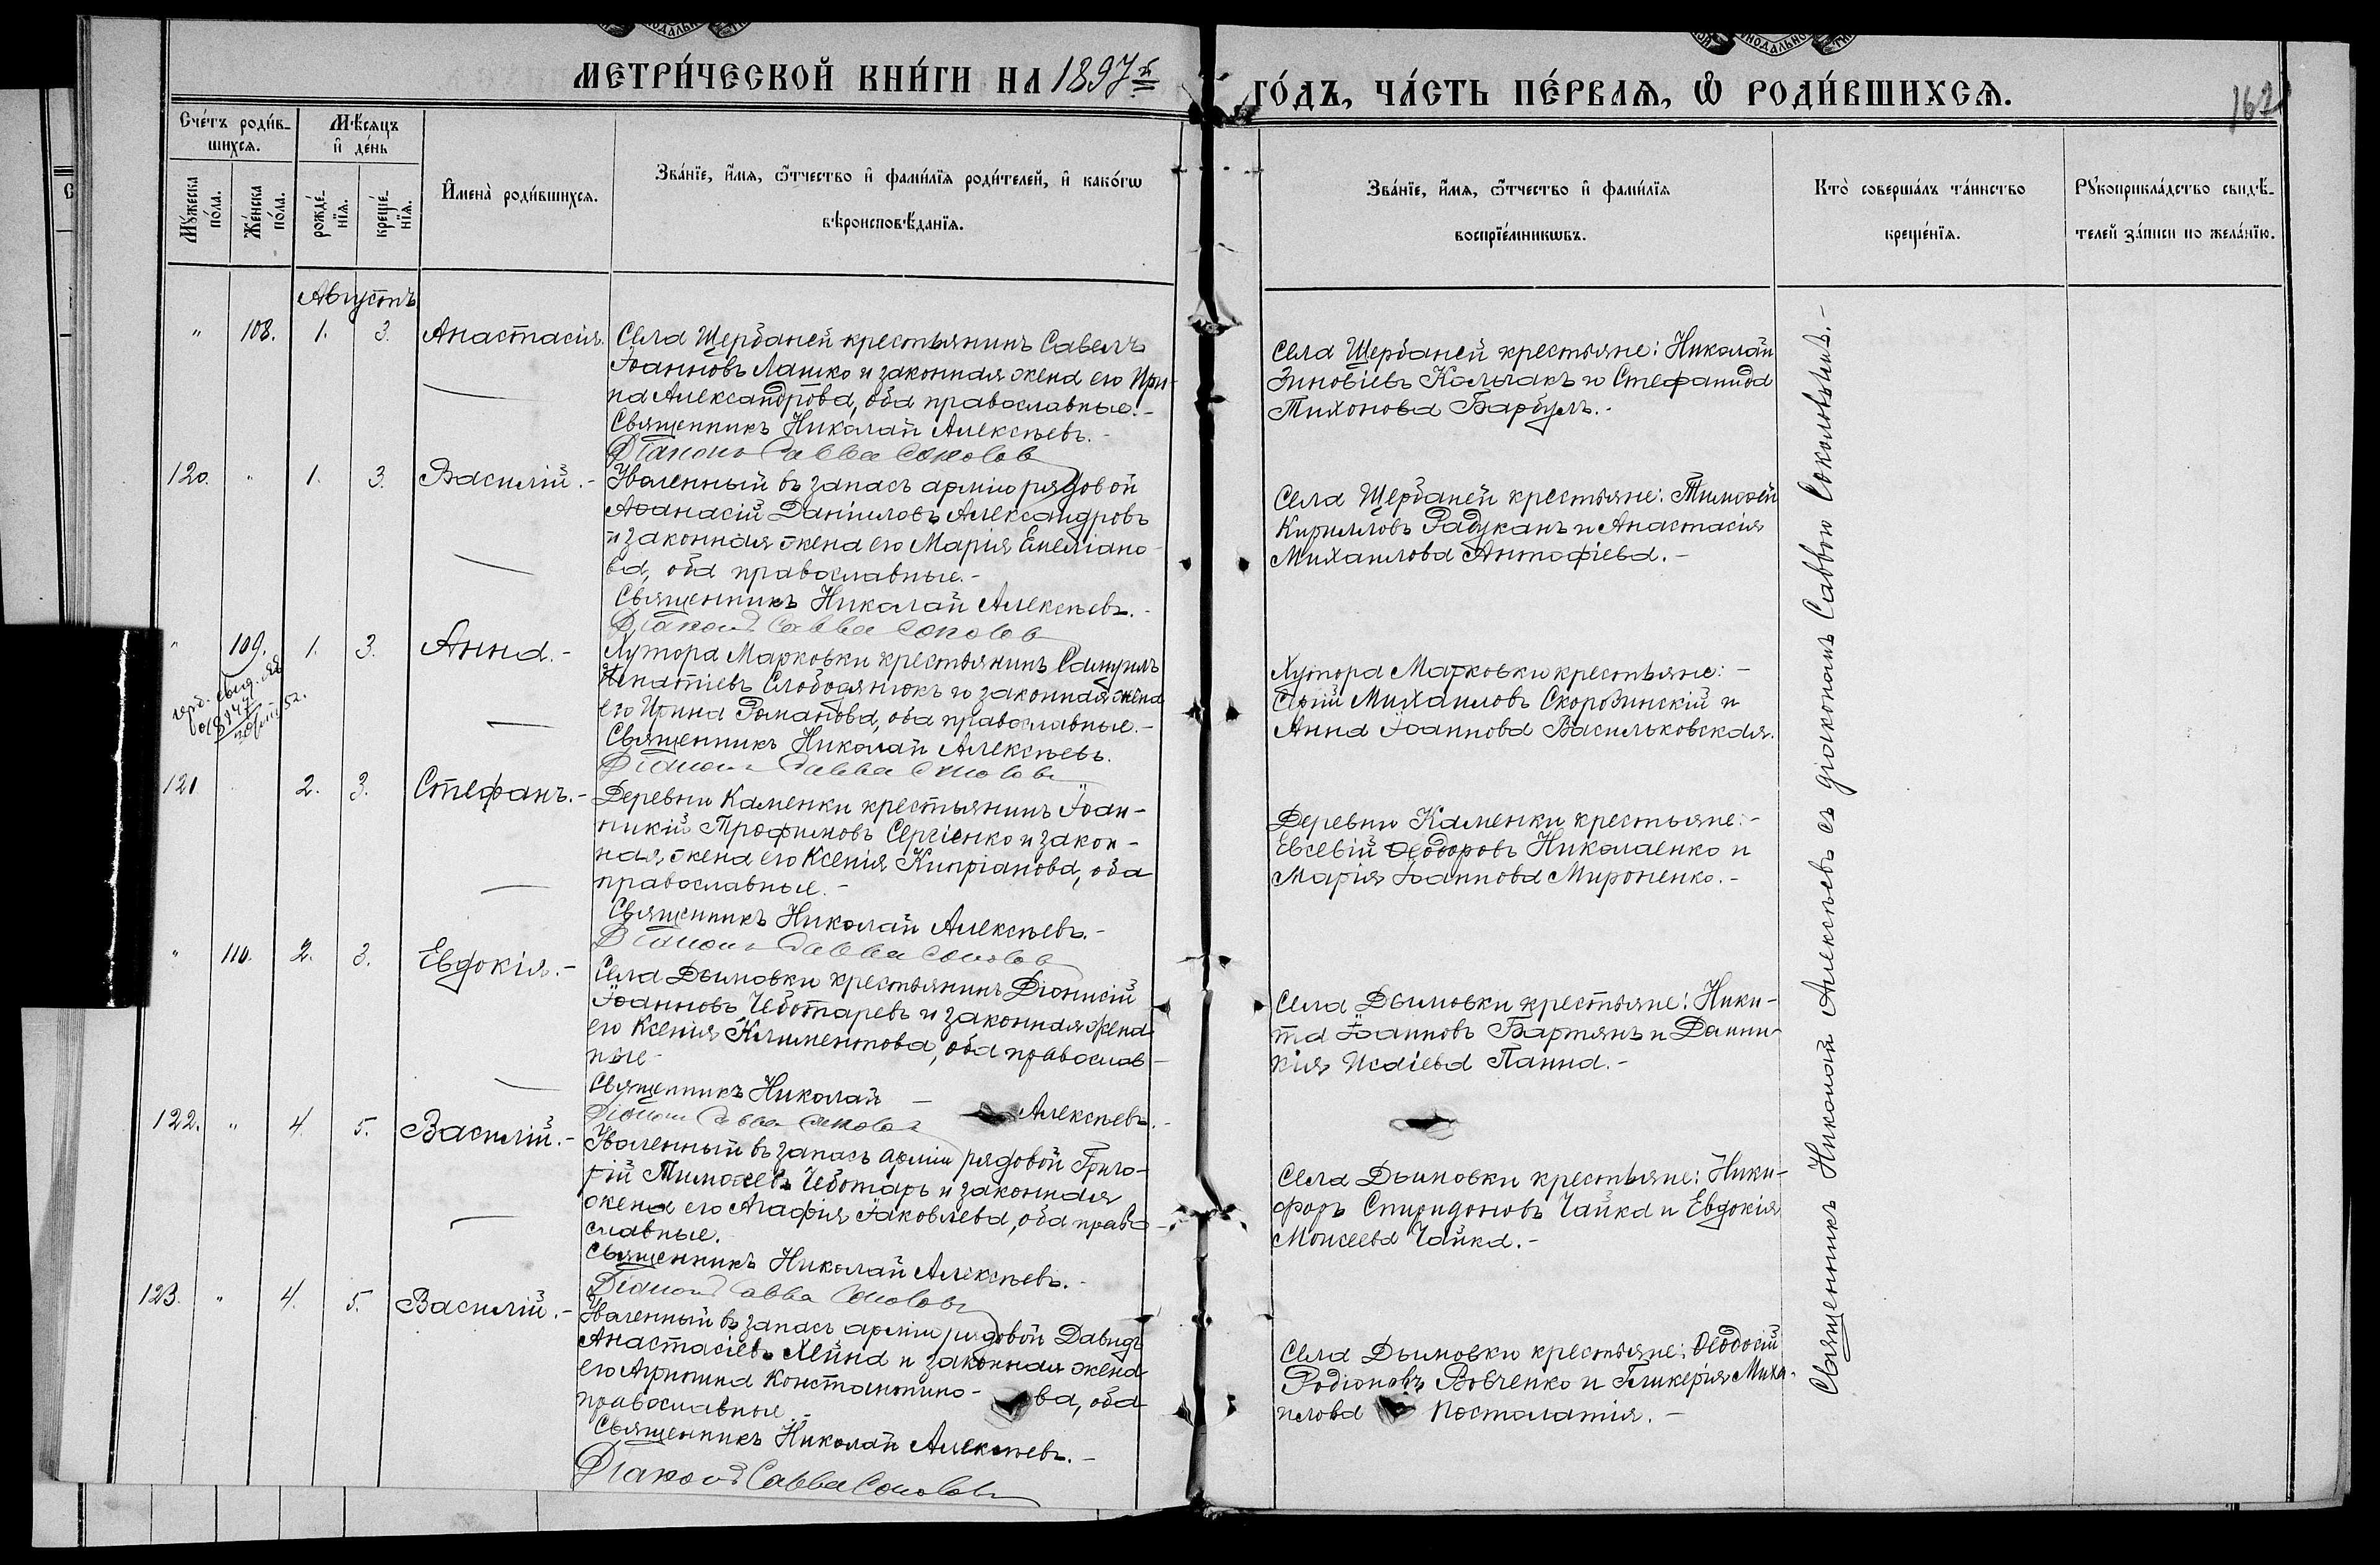 МЕТРИ́ЧЕСКОЙ КНИ́ГИ НА 1897й
ГО́ДЪ, ЧА́СТЬ ПЕ́РВАѦ, Ѡ҆ РОДИ́ВШИХСѦ.
162
Сче́тъ роди́в-
шихсѧ.
Мѣ́сѧцъ
и҆ де́нь
Мꙋ́жеска
по́ла.
Же́нска
по́ла.
рожде́-
нїѧ.
креще́-
нїѧ.
И҆мена̀ роди́вшихсѧ.
Зва́нїе, и҆́мѧ, ѻ҆́тчество и҆ фами́лїѧ роди́телей, и҆ како́гѡ
вѣроисповѣ́данїѧ.
Зва́нїе, и҆́мѧ, ѻ҆́тчество и҆ фами́лїѧ
воспрїе́мникѡвъ.
Кто̀ соверша́лъ та́инство
креще́нїѧ.
Рꙋкоприкла́дство свидѣ́-
телей за́писи по жела́нїю.
Августъ
" 108. 1. 3. Анастасія.
Села Щербаней крестьянинъ Савелъ
Іоанновъ Лашко и законная жена его Ири-
на Александрова, оба православные.-
Священникъ Николай Алексѣевъ.-
Діаконъ Савва Соколовъ
Села Щербаней крестьяне: Николай
Зиновіевъ Колчакъ и Стефанида
Тихонова Барбулъ.-
120. " 1. 3. Василій.-
Уволенный въ запасъ арміи рядовой
Аѳанасій Даніиловъ Александровъ
и законная жена его Марія Емеліано-
ва, оба православные.-
Священникъ Николай Алексѣевъ.-
Діаконъ Савва Соколовъ
Села Щербаней крестьяне: Тимоѳей
Кирилловъ Радуканъ и Анастасія
Михаилова Антофіева.-
" 109. 1. 3. Анна.-
Хутора Марковки крестьянинъ Самуилъ
Игнатіевъ Слободянюкъ и законная жена
его Ирина Романова, оба православные.-
Священникъ Николай Алексѣевъ.
Діаконъ Савва Соколовъ
Хутора Марковки крестьяне:-
Михаиловъ Скоробинскій и
Анна Іоаннова Васильковская.
121. 2. 3. Стефанъ.-
Деревни Каменки крестьянинъ Іоан-
никій Трофимовъ Сергіенко и закон-
ная жена его Ксенія Кипріанова, оба
православные.-
Священникъ Николай Алексѣевъ.-
Діаконъ Савва Соколовъ
Деревни Каменки крестьяне:-
Евсевій Ѳеодоровъ Николаенко и
Марія Іоаннова Мироненко.-
" 110. 2. 3. Евдокія.-
Села Дымовки крестьянинъ Діонисій
Іоанновъ Чеботаревъ и законная жена
его Ксенія Климентова, оба православ-
ные
Священникъ Николай - Алексѣевъ.-
Діаконъ Савва Соколовъ
Села Дымовки крестьяне: Ники-
та Іоанновъ Бартянъ и Домни-
кія Исаіева Панна.-
122. " 4. 5. Василій.-
Уволенный въ запасъ арміи рядовой Григо-
рій Тимоѳеевъ Чеботарь и законная
жена его Агафія Іаковлева, оба право-
славные.
Священникъ Николай Алексѣевъ.-
Діаконъ Савва Соколовъ
Села Дымовки крестьяне: Ники-
форъ Спиридоновъ Чайка и Евдокія
Моисеева Чайка.-
123. " 4. 5. Василій.-
Уволенный въ запасъ арміи рядовой Давидъ
Анастасіевъ Хейна и законная жена
его Агрипина Константино- ва, оба
православные.-
Священникъ Николай Алексѣевъ.-
Діаконъ Савва Соколовъ
Села Дымовки крестьяне: Ѳеодосій
Родіоновъ Вовченко и Гликерія Миха-
илова Постолатія.-
Священникъ Николай Алексѣевъ съ діакономъ Саввою Соколовымъ.-